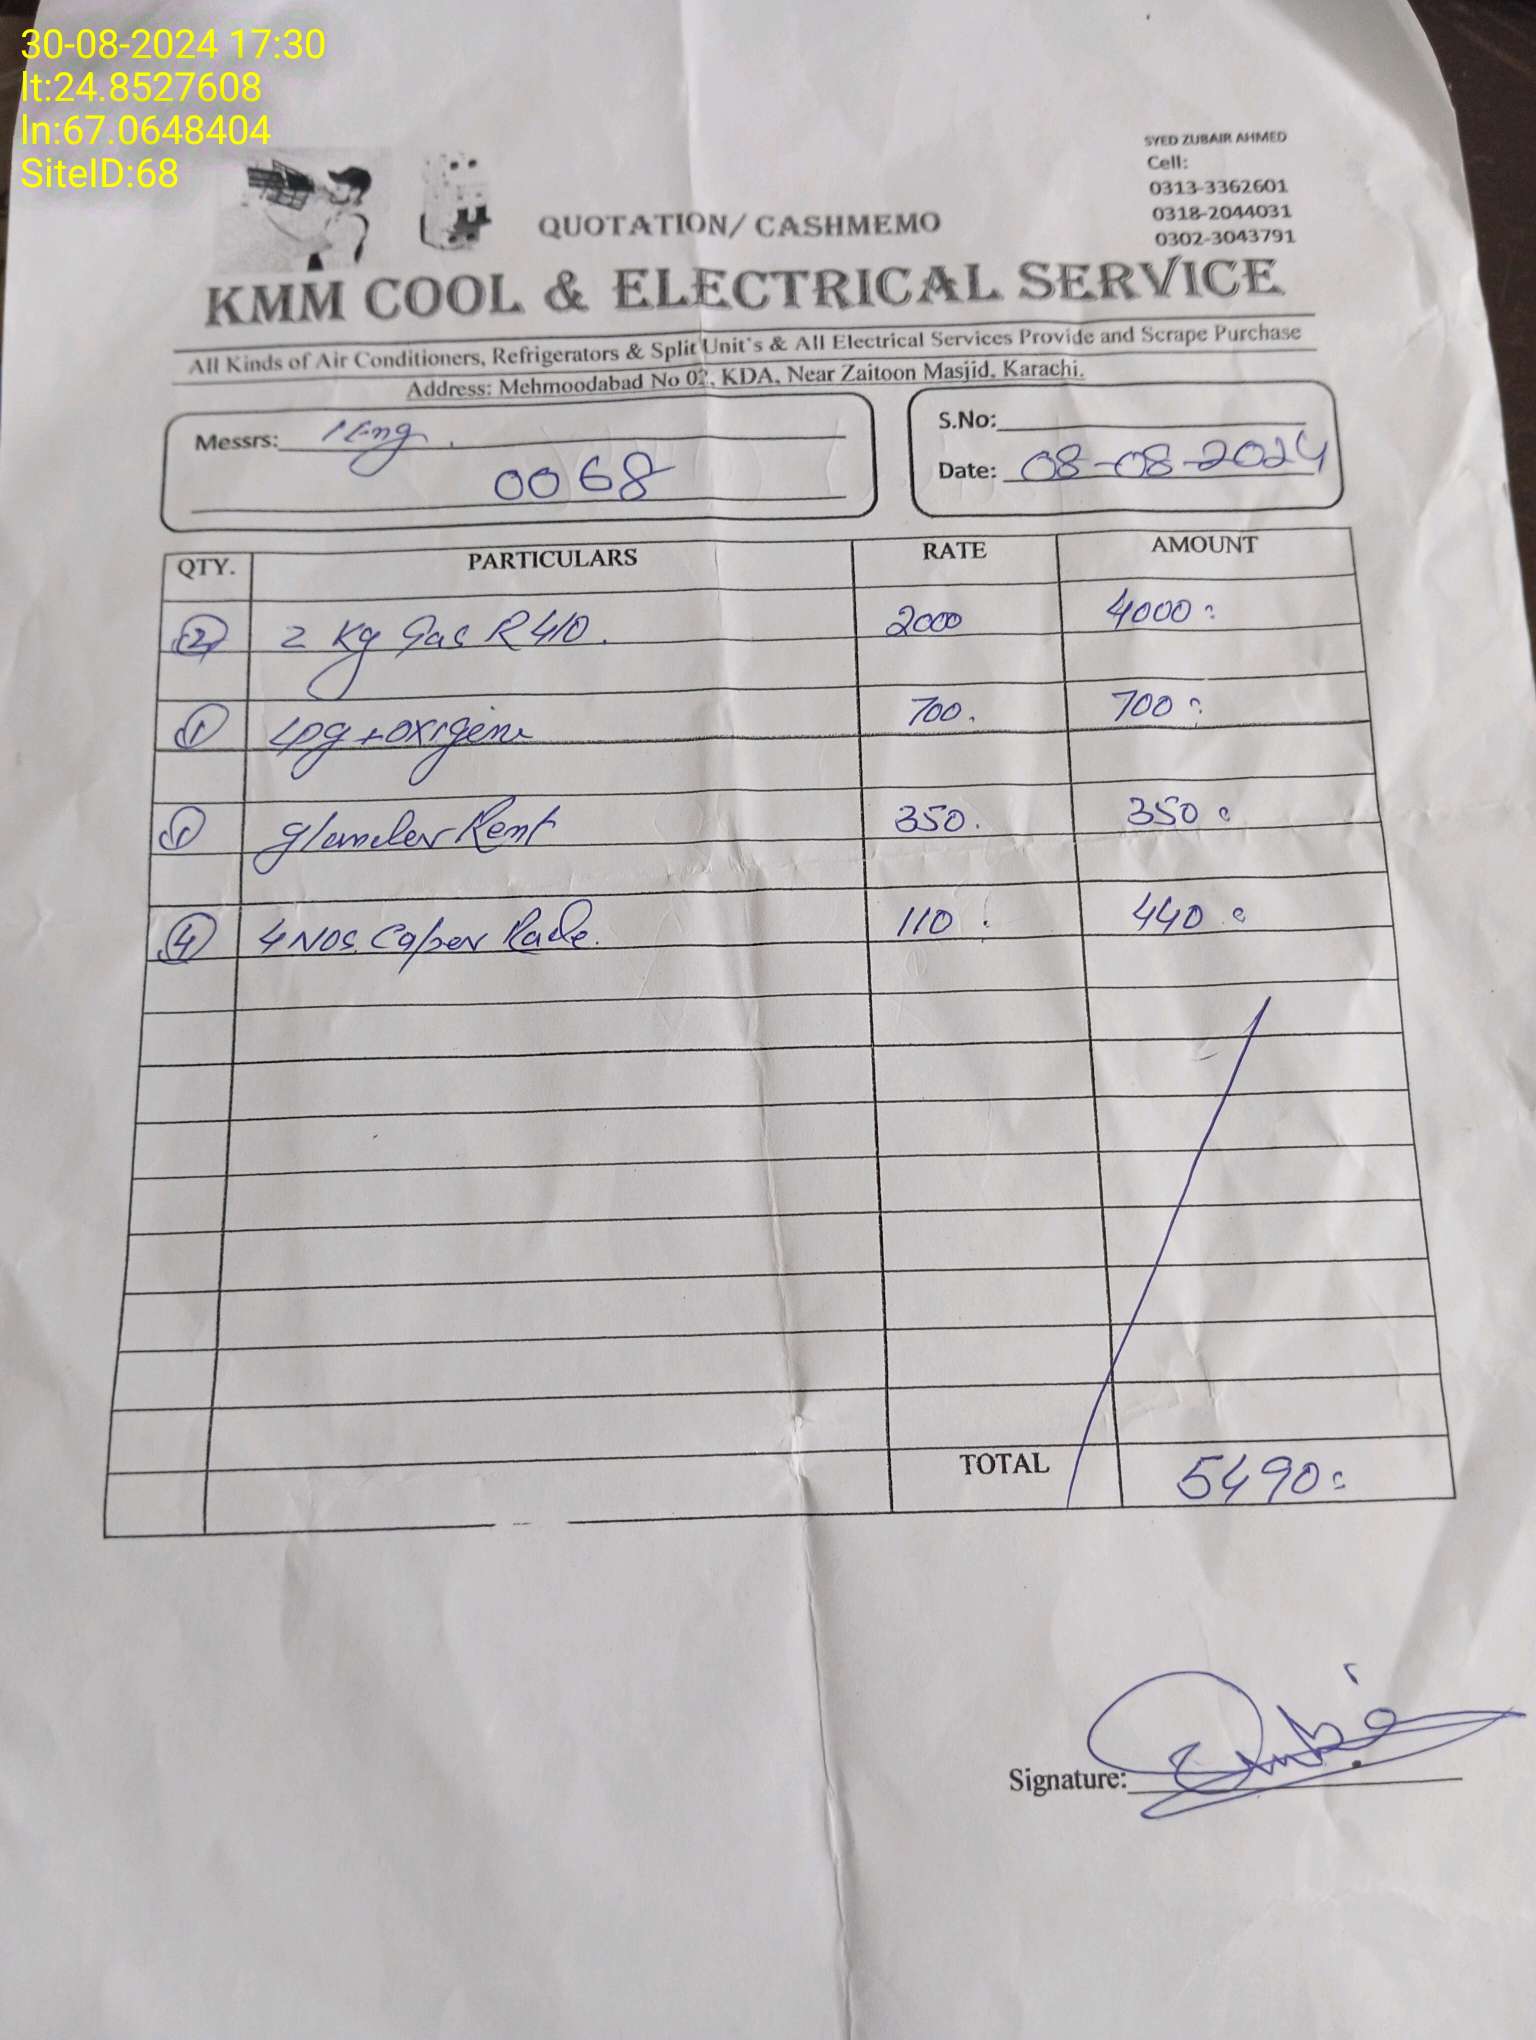 30-08-2024 17:30
lt:24.8527608
ln:67.0648404
SiteID:68
SYED ZUBAIR AHMED
Cell:
0313-3362601
0318-2044031
0302-3043791
QUOTATION/ CASHMEMO
KMM COOL & ELECTRICAL SERVICE
All Kinds of Air Conditioners, Refrigerators & Split Unit's & All Electrical Services Provide and Scrape Purchase
Address: Mehmoodabad No 02, KDA, Near Zaitoon Masjid, Karachi.
Messrs:
0068
S.No:
Date: 08-08-2024
QTY. PARTICULARS RATE AMOUNT
2 2 Kg Gas R410. 2000 4000
1 Lpg + oxigene 700. 700
1 Rent 350. 350
4 4 NOS. 110 440
TOTAL 5490
Signature: